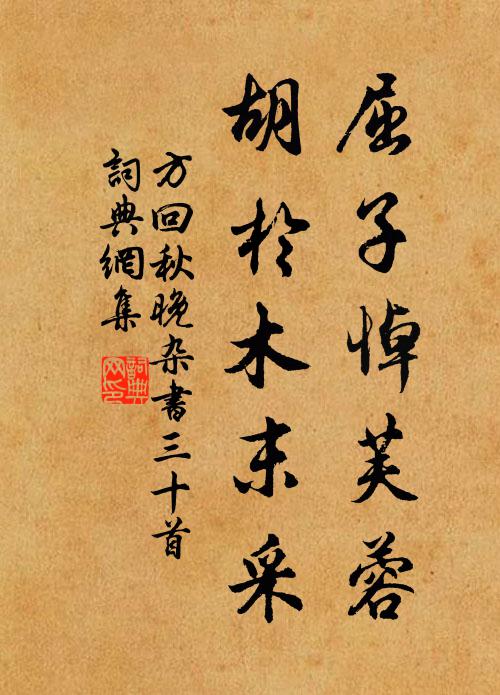 屈子悼芙蓉
胡於木末采
方回秋晚杂書三十首
詞典網集
詞典
网印